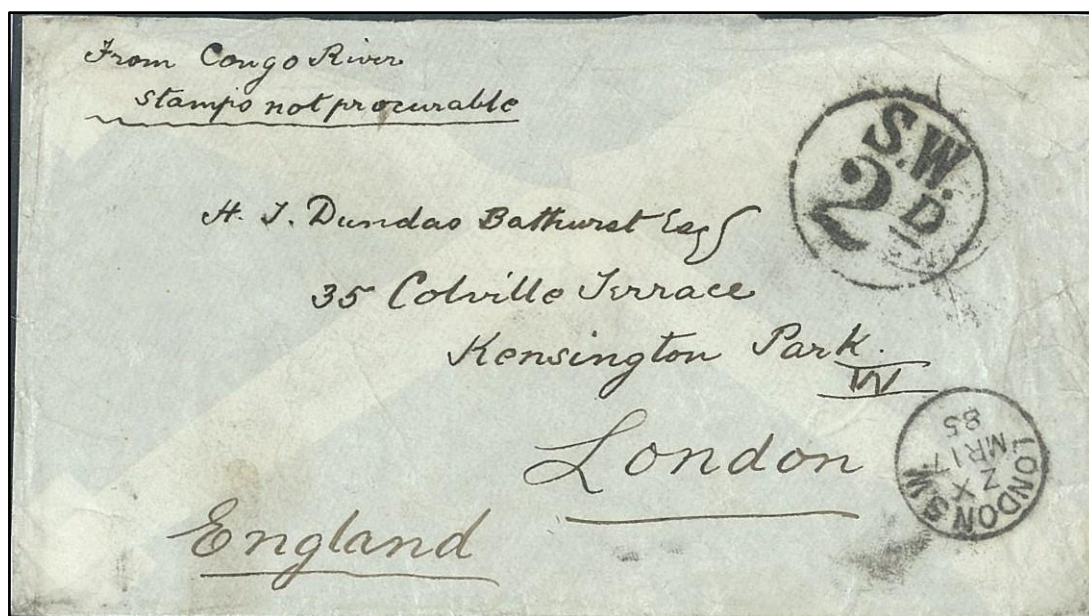 From Congo River
stamps not procurable
S.W.
2 D
H. J. Dundas Bathurst Esq
35 Colville Terrace
Kensington Park.
W
London
England
LONDON S.W
Z X
MR 17
85